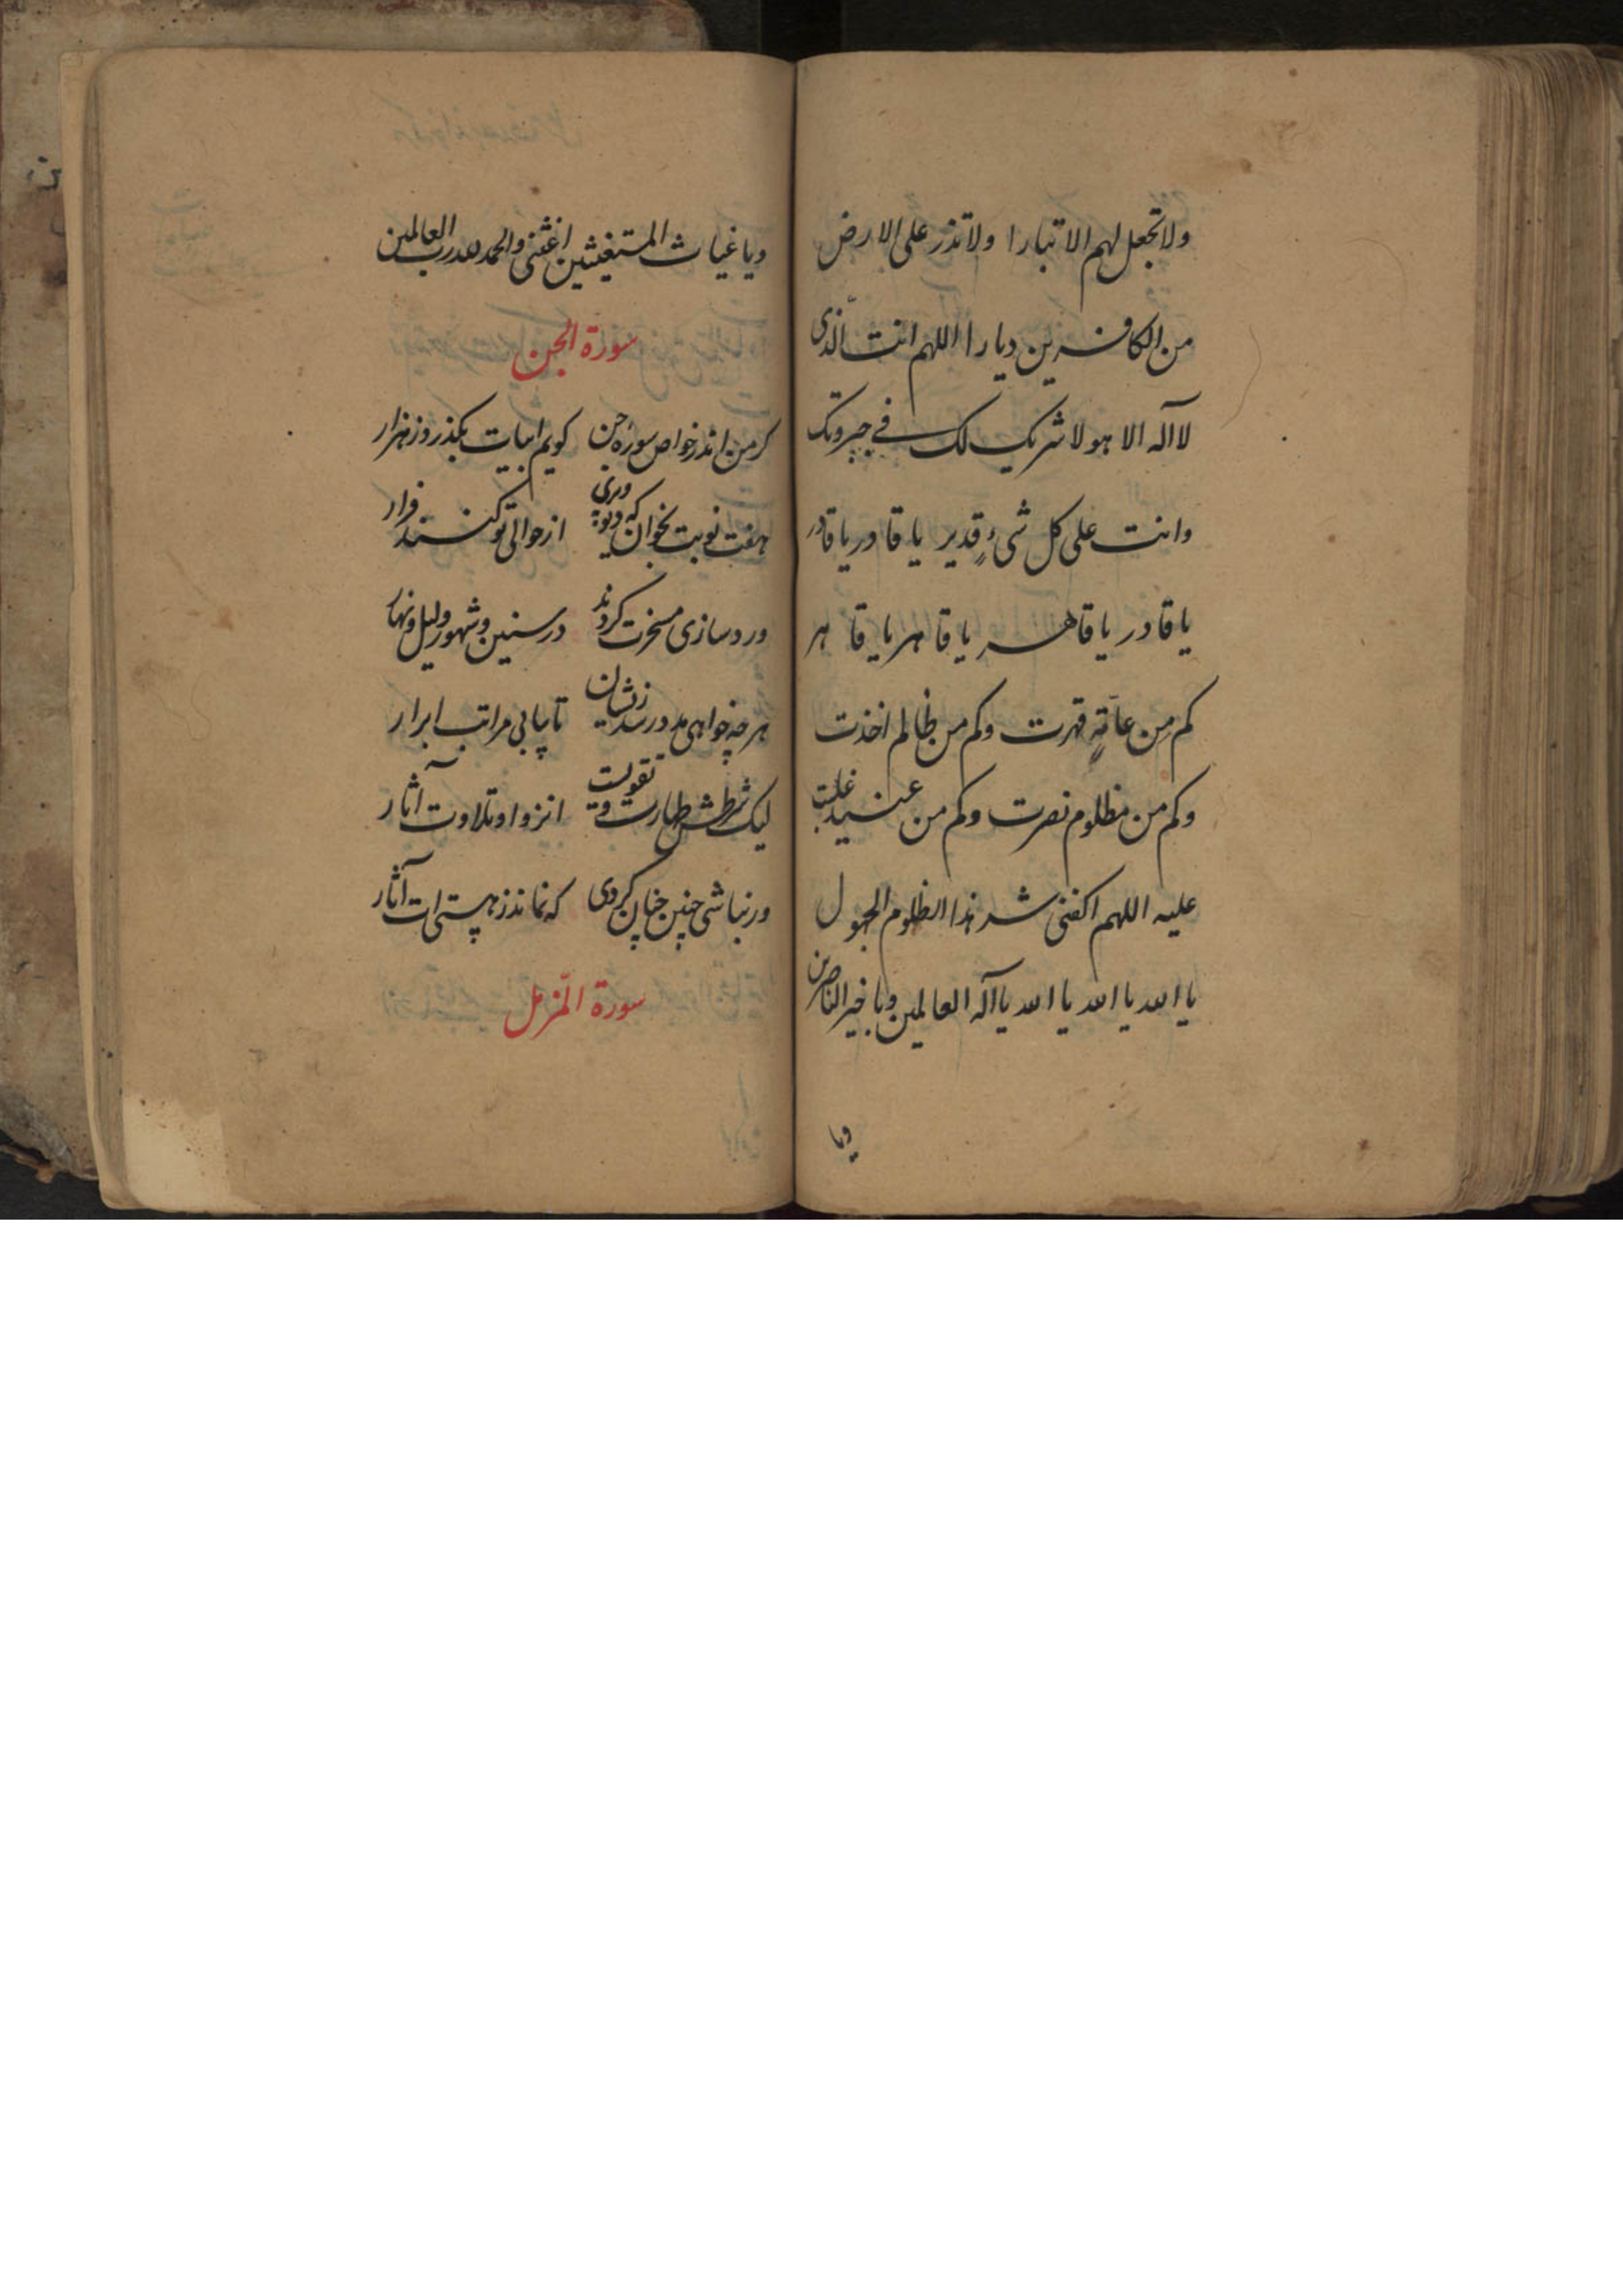 ولا تجعل لهم الا تبارا ولا تذر علی الارض
من الکافرین دیارا اللهم انت الّذی
لا اله الا هو لا شریک لک فی جبروتک
وانت علی کل شیءٍ قدیر یا قادر یا قادر
یا قادر یا قاهر یا قاهر یا قاهر
کم من عاتیه قهرت وکم من ظالم اخذت
وکم من مظلوم نصرت وکم من عنید غلبت
علیه اللهم اکفنی شر هذا الظلوم الجهول
یا الله یا الله یا الله یا اله العالمین ویا خیر الناصرین
ویا
ویا غیاث المستغیثین اغثنی والحمد لله رب العالمین
سورة الجن
کر من اندر خواص سوره جن کویم ابیات بکذرد ز هزار
هفت نوبت بخوان که دیو وپری از حوالی تو کنند فرار
ورد سازی مسخرت کردند در سنین وشهور ولیل ونهار
هر چه خواهی مدد رسد زیشان تا بیابی مراتب ابرار
لیک شرطش طهارت و تقویت انزوا و تلاوت آثار
ور نباشی چنین چنان کردی که نماند ز هستی ات آثار
سورة المّزمل